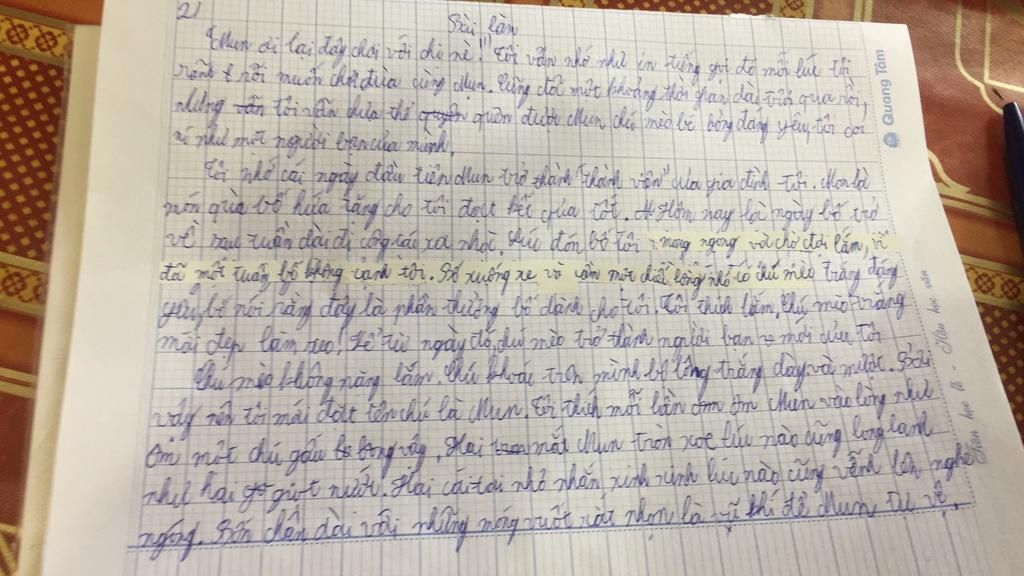 2)
Bài làm
"Mun ơi lại đây chơi với chị nè!" Tôi vẫn nhớ như in tiếng gọi đó mỗi lúc tôi
rảnh rỗi muốn chơi đùa cùng Mun. Cũng đã một khoảng thời gian dài trôi qua rồi,
nhưng tôi vẫn chưa thể quên được Mun chú mèo bé bỏng đáng yêu tôi coi
nó như một người bạn của mình.
Tôi nhớ cái ngày đầu tiên Mun trở thành "thành viên" của gia đình tôi. Mon là
món quà bố hứa tặng cho tôi đạt kết quả tốt. Hôm nay là ngày bố trở
về sau tuần dài đi công tác xa nhà. Háo đón bố tôi mong ngong và chờ đợi lắm, vì
đã một tuần bố không cạnh tôi. Bố xuống xe và cầm một chiếc lồng nhỏ có chú mèo trắng đáng
yêu, bố nói rằng đây là phần thưởng bố dành cho tôi. Tôi thích lắm, chú mèo trắng
mới đẹp làm sao! Kể từ ngày đó, chú mèo trở thành người bạn mới của tôi
Chú mèo không nặng lắm. Chú khoác trên mình bộ lông trắng dày và mượt. Bởi
vậy nên tôi mới đặt tên chú là Mun. Tôi thích mỗi lần ôm Mun vào lòng như
ôm một chú gấu bông vậy. Hai mắt Mun tròn xoe lúc nào cũng long lanh
như hai giọt nước. Hai cái tai nhỏ nhắn, xinh xinh lúc nào cũng vểnh lên nghe
ngóng. Bốn chân dài với những móng vuốt sắc nhọn là vũ khí để Mun tự vệ.
Quang Tâm
Văn học văn